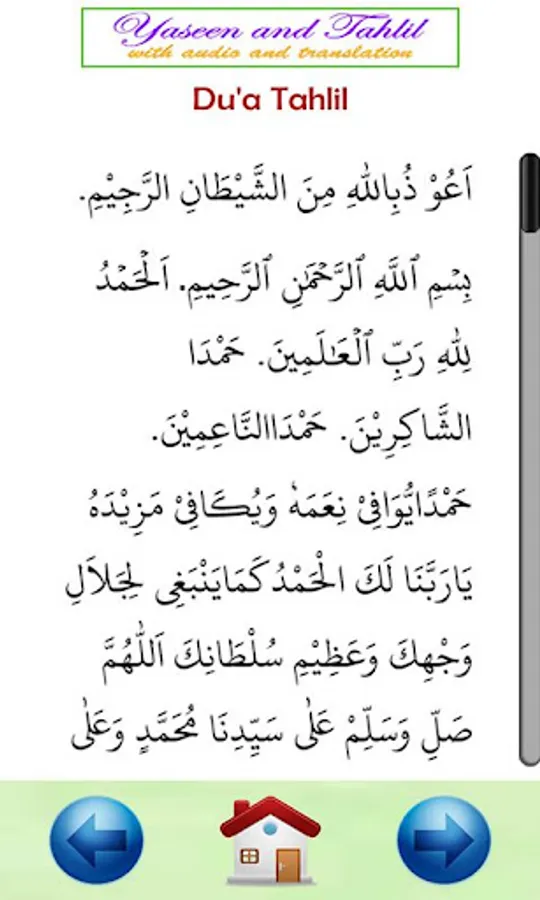 Yaseen and Tahlil
with audio and translation
Du'a Tahlil
اَعُوْ ذُبِاللهِ مِنَ الشَّيْطَانِ الرَّجِيْمِ.
بِسْمِ ٱللَّهِ ٱلرَّحْمَٰنِ ٱلرَّحِيمِ. اَلْحَمْدُ
لِلّٰهِ رَبِّ ٱلْعَـٰلَمِينَ. حَمْدَا
الشَّاكِرِيْنَ. حَمْدَاالنَّاعِمِيْنَ.
حَمْدًايُّوَافِىْ نِعَمَهٗ وَيُكَافِىْ مَزِيْدَهُ
يَارَبَّنَا لَكَ الْحَمْدُ كَمَايَنْبَغِى لِجَلاَلِ
وَجْهِكَ وَعَظِيْمِ سُلْطَانِكَ اَللّٰهُمَّ
صَلِّ وَسَلِّمْ عَلٰى سَيِّدِنَا مُحَمَّدٍ وَعَلٰى